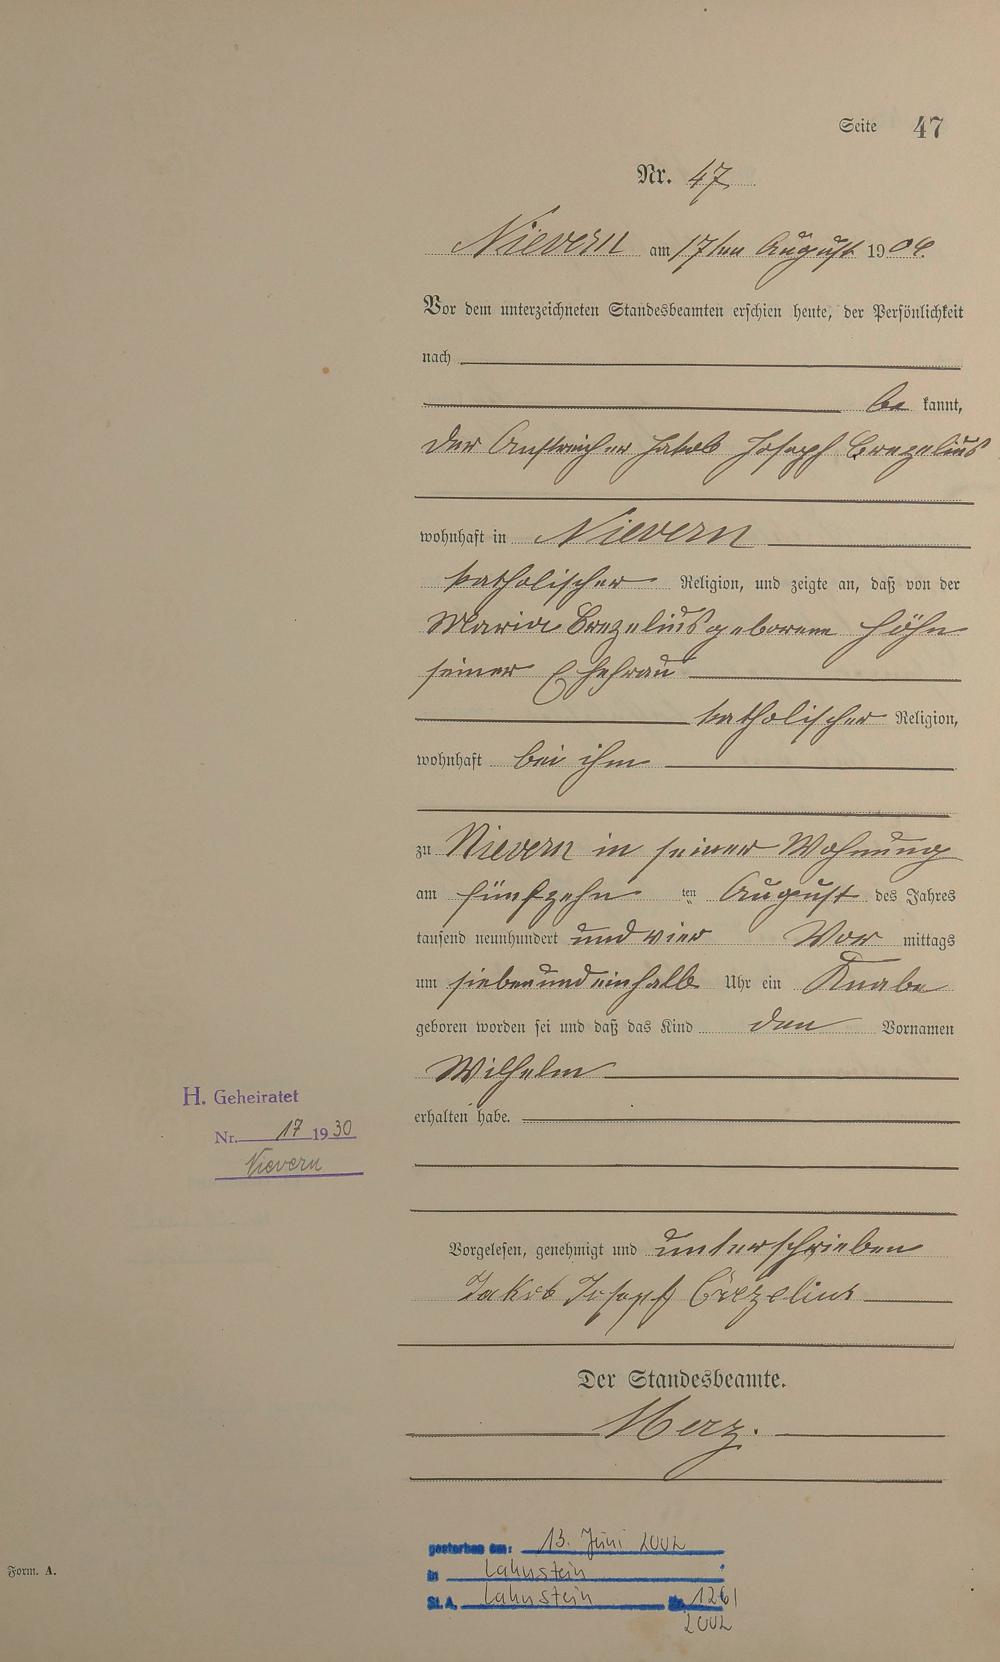 Seite 47
Nr. 47
Nievern am 17ten August 1904.
Vor dem unterzeichneten Standesbeamten erschien heute, der Persönlichkeit
nach
be kannt,
der Anstreicher Jakob Joseph Crezelius
wohnhaft in Nievern
katholischer Religion, und zeigte an, daß von der
Maria Crezelius geborene Höhn
seiner Ehefrau
katholischer Religion,
wohnhaft bei ihm
zu Nievern in seiner Wohnung
am fünfzehn ten August des Jahres
tausend neunhundert und vier Vor mittags
um siebenundeinhalb Uhr ein Knabe
geboren worden sei und daß das Kind den Vornamen
Wilhelm
H. Geheiratet
erhalten habe.
Nr. 17 1930
Nievern
Vorgelesen, genehmigt und unterschrieben
Jakob Joseph Crezelius
Der Standesbeamte.
Merz.
gestorben am: 13. Juni 2002
in Lahnstein
Form. A.
St.A. Lahnstein Nr. 126/
2002